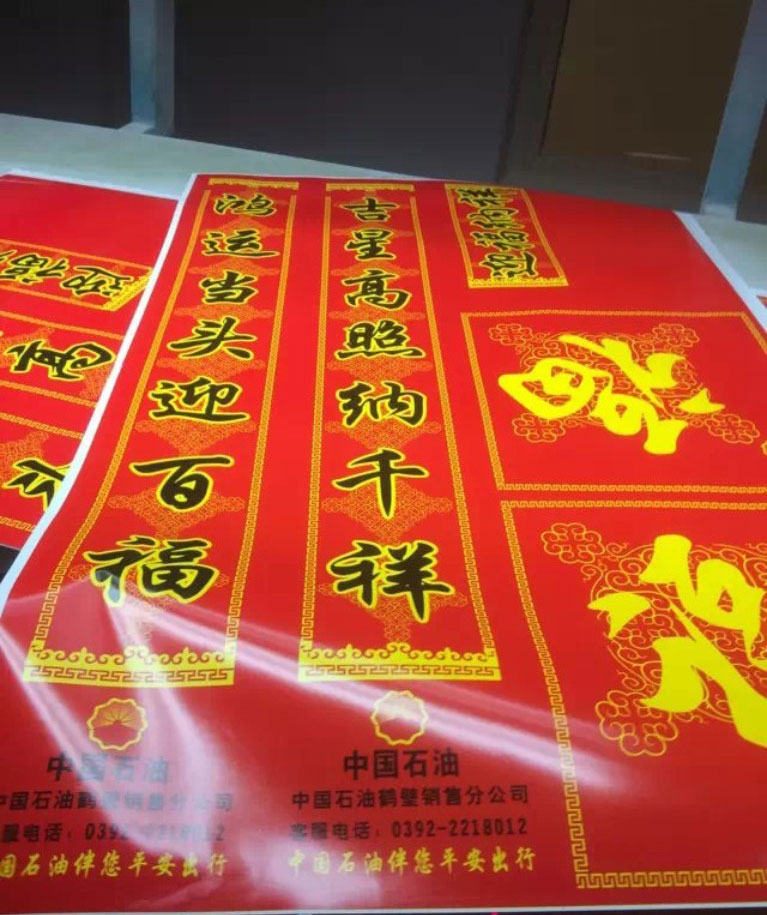 鸿运当头迎百福
吉星高照纳千祥
迎福纳祥
福
福
迎福
高
中国石油
中国石油鹤壁销售分公司
客服电话：0392-2218012
中国石油伴您平安出行
中国石油
中国石油鹤壁销售分公司
客服电话：0392-2218012
中国石油伴您平安出行